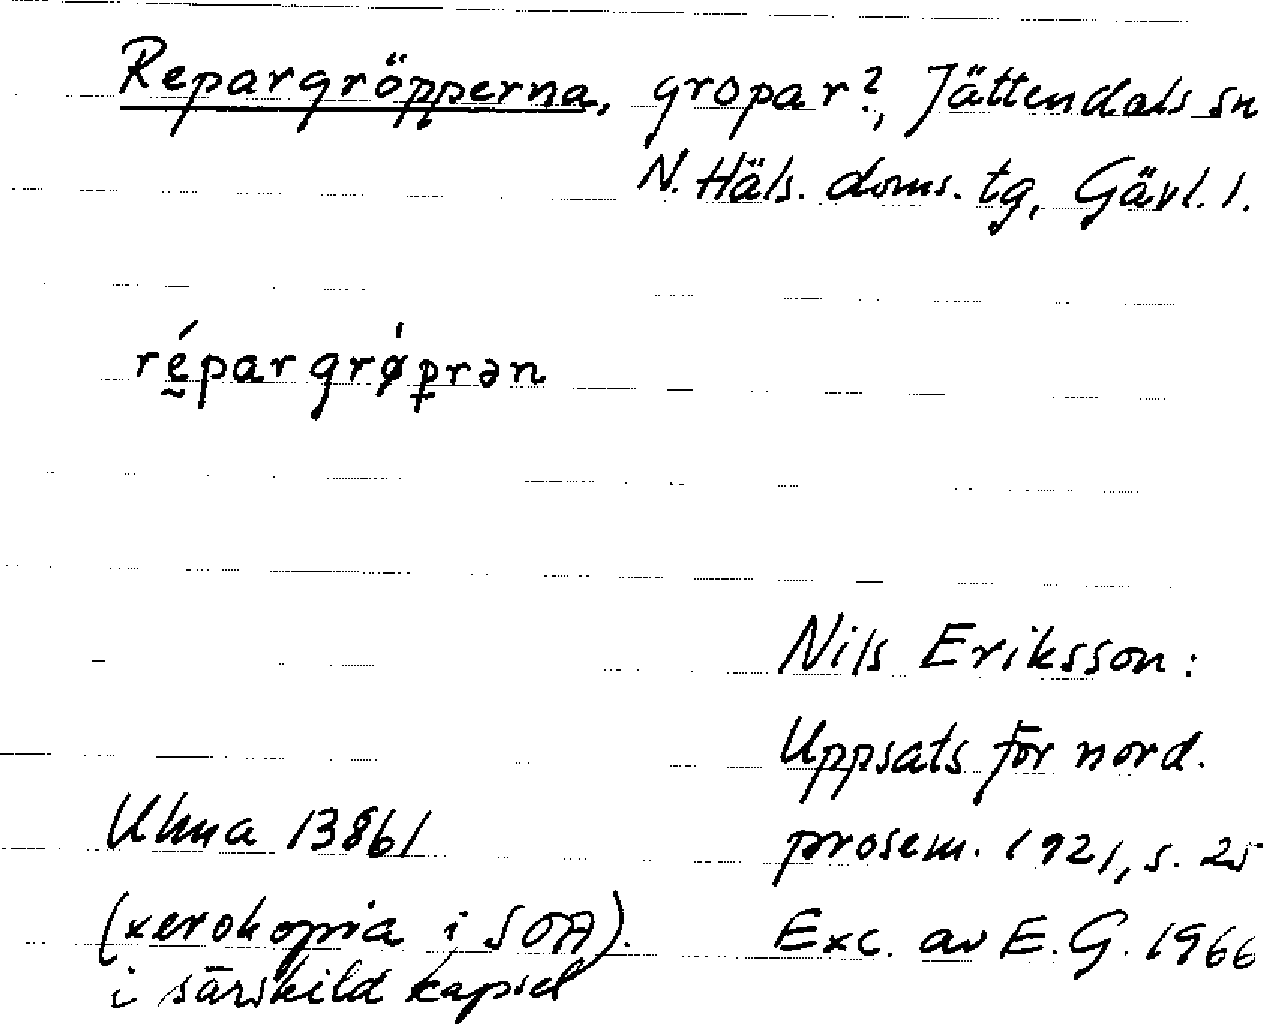 Repargröpperna, gropar?, Jättendals sn
N. Häls. doms. tg, Gävl. l.
rḛ́pargrǿp̱rən
Nils Eriksson:
Uppsats för nord.
prosem. 1921, s. 25
Exc. av E. G. 1966
Uhua 13861
(xerokopia i SOA).
i särskild kapsel